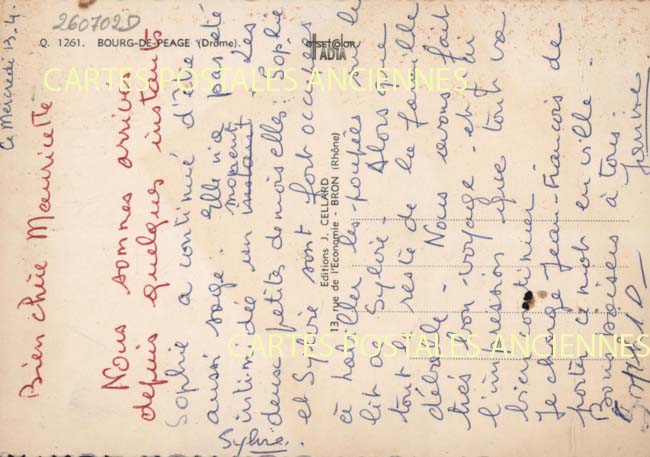 Ce Mercredi 13.4.
Bien chère Mauricette
Nous sommes arrivés
depuis quelques instants
Sophie a continué d'être
aussi sage. Elle n'a pas été
intimidée un instant moment. Les
deux petites demoiselles : Sophie
et Sylvie sont fort occupées
à habiller les poupées sur le
lit de Sylvie. Alors que
tout le reste de la famille
déballe. Nous avons fait
très bon voyage et j'ai
l'impression que tout va
bien continuer.
Je charge Jean-François de
porter ce mot en ville.
Bons baisers à tous.
Janine
Sylvie.
2607020
Q. 1261. BOURG-DE-PEAGE (Drôme).
offset-color
ADIA
Editions J. CELLARD
13, rue de l'Economie - BRON (Rhône)
CARTES POSTALES ANCIENNES
CARTES POSTALES ANCIENNES